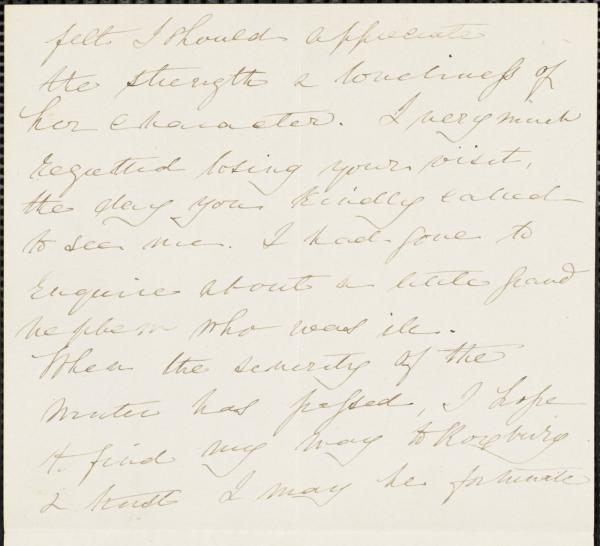 felt I should appreciate
the strength & loveliness of
her character. I very much
regretted losing your visit,
the day you kindly called
to see me. I had gone to
enquire about a little grand
nephew who was ill.
When the severity of the
winter has passed, I hope
to find my way to Roxbury
& trust I may be fortunate